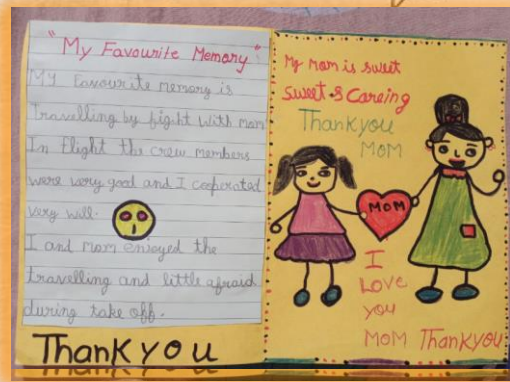 "My Favourite Memory"
MY Favourite memory is
Travelling by fight with mam
In flight the crew members
were very good and I cooperated
very will.
I and mam enjoyed the
travelling and little afraid
during take off.
Thank you
My mam is sweet
Sweet & Careing
Thankyou
MOM
MOM
I
Love
you
MOM Thankyou